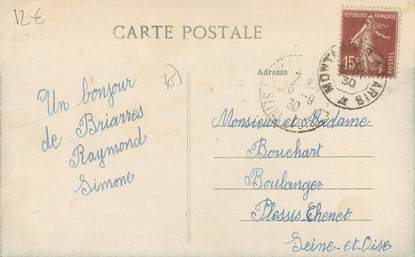 12€
CARTE POSTALE
REPUBLIQUE FRANÇAISE
15c
POSTES
Adresse
45
Un bonjour
de Briarres
Raymond
Simone
Monsieur et Madame
Bouchart
Boulanger
Plessis Chenet
Seine-et-Oise
PARIS
30
30